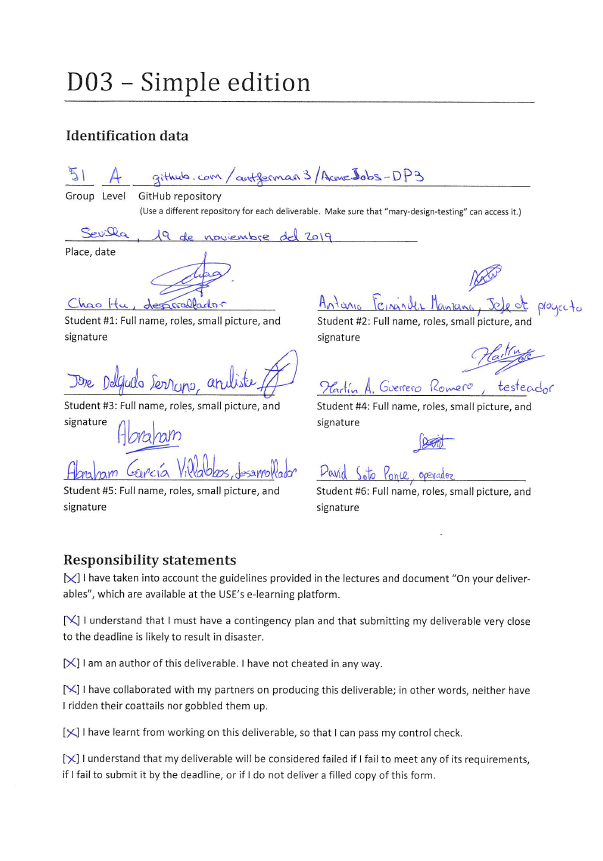 D03 – Simple edition
Identification data
51 A github.com/antferman3/AcmeJobs-DP3
Group Level GitHub repository
(Use a different repository for each deliverable. Make sure that "mary-design-testing" can access it.)
Sevilla, 19 de noviembre del 2019
Place, date
Chao Hu, desarrollador
Student #1: Full name, roles, small picture, and
signature
Antonio Fernández Manzano, Jefe de proyecto
Student #2: Full name, roles, small picture, and
signature
Jose Delgado Serrano, analista
Student #3: Full name, roles, small picture, and
signature
Martín
Martín A. Guerrero Romero, testeador
Student #4: Full name, roles, small picture, and
signature
Abraham
Abraham García Villalobos, desarrollador
Student #5: Full name, roles, small picture, and
signature
David Soto Ponce, operador
Student #6: Full name, roles, small picture, and
signature
Responsibility statements
[X] I have taken into account the guidelines provided in the lectures and document "On your deliver-
ables", which are available at the USE's e-learning platform.
[X] I understand that I must have a contingency plan and that submitting my deliverable very close
to the deadline is likely to result in disaster.
[X] I am an author of this deliverable. I have not cheated in any way.
[X] I have collaborated with my partners on producing this deliverable; in other words, neither have
I ridden their coattails nor gobbled them up.
[X] I have learnt from working on this deliverable, so that I can pass my control check.
[X] I understand that my deliverable will be considered failed if I fail to meet any of its requirements,
if I fail to submit it by the deadline, or if I do not deliver a filled copy of this form.